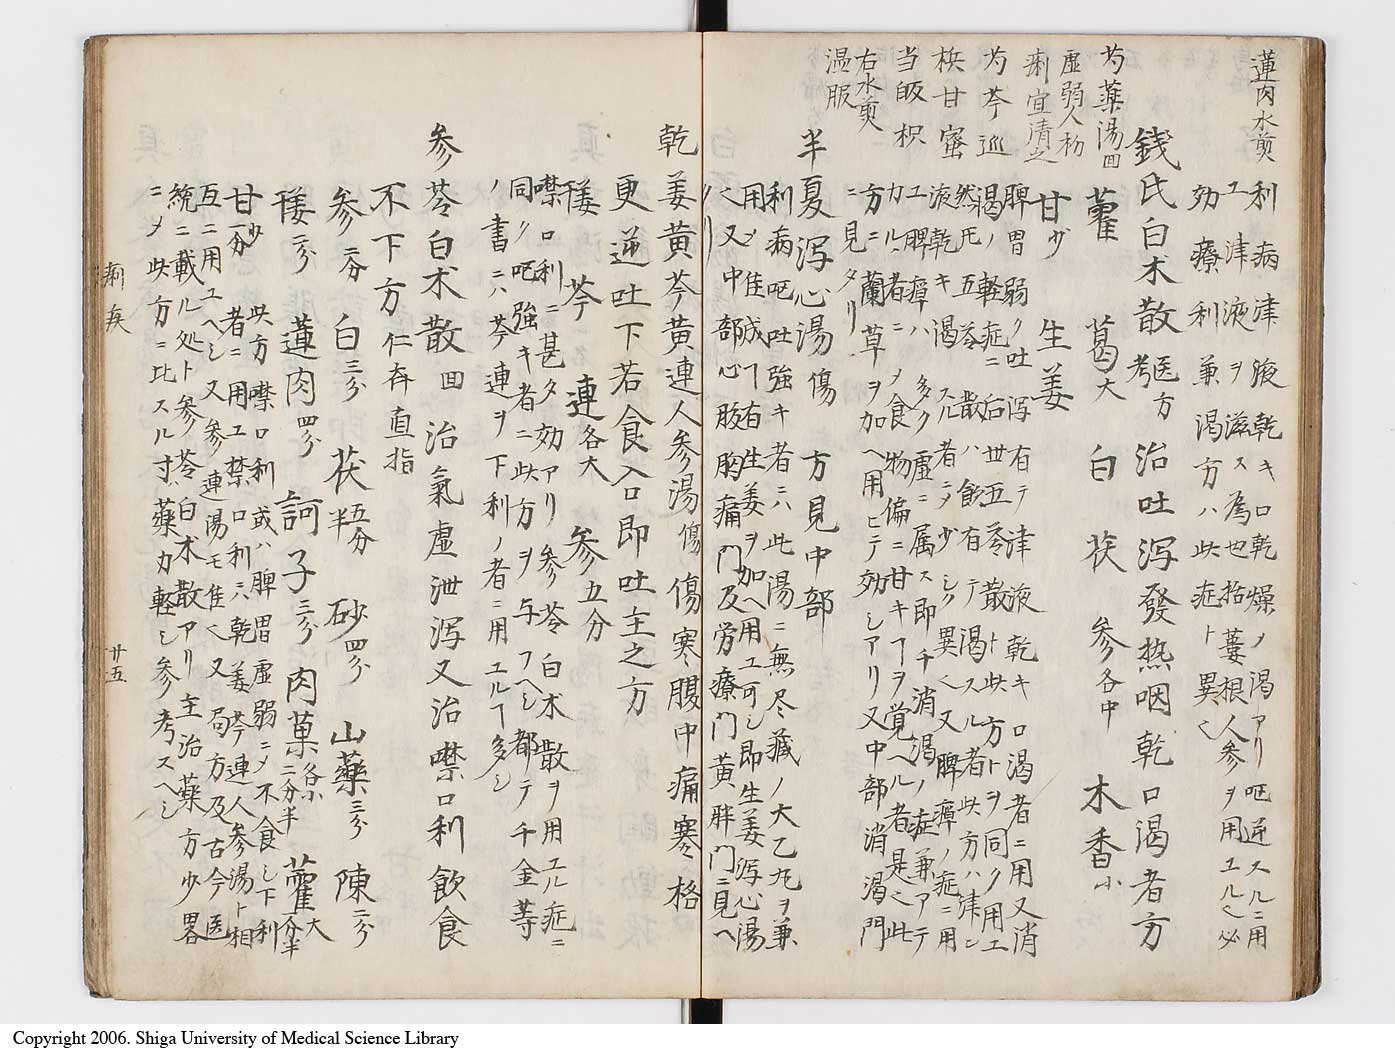 蓮肉水煎
芍薬湯回
虚弱人
痢宜清之
芍芩
梹甘
当皈枳
右水煎
温服
利病津液乾キ口乾燥ノ渇アリ呃逆スルニ用
ユ津液ヲ滋ス為也栝蔞根人参ヲ用ユル必
効療利兼渇方ハ此症ト異
銭氏白术散医方考治吐瀉發热咽乾口渇者方
藿葛大白茯参各中木香小
甘少生姜
脾胃弱ク吐瀉有テ津液乾キ口渇者ニ用又消
渇ノ軽症ニ后世五苓散ト此方トヲ同ク用ユ
然𪜈五苓散ハ飲有テ渇スル者此方ハ津
液乾キ渇スル者ニ少シク異又脾瘅ノ症ニ用
ユ脾瘅ハ多ク虚ニ属ス即チ消渇ノ症兼アテ
カル者ニ食物偏ニ甘キヲ覚ヘル者是此
方ニ蘭草ヲ加ヘ用ヒテ効シアリ又中部消渇門
ニ見タリ
半夏瀉心湯傷方見中部
利病呃吐強キ者ニハ此湯ニ無尽蔵ノ大乙丸ヲ兼
用ヲ佳成有生姜ヲ加ヘ用ユ可シ即生姜瀉心湯
又中部心腹胸痛門及労療門黄胖門ニ見ヘ
タリ
乾姜黄芩黄連人参湯傷傷寒腹中痛寒格
更逆吐下若食入口即吐主之方
䅹芩連各大参五分
噤口利ニ甚タ効アリ参苓白术散ヲ用ユル症ニ
同ク呃強キ者ニ此方ヲ与フヘシ都テ千金等
ノ書ニハ芩連ヲ下利ノ者ニ用ユル多シ
参苓白术散回治氣虚泄瀉又治噤口利飲食
不下方仁存直指
参二分白三分茯五分半砂四分山藥三分陳二分
䅹二分蓮肉四分訶子三分肉菓各小二分半藿大二分半
甘炒一分此方噤口利或ハ脾胃虚弱ニ不食シ下利
者ニ用ユ禁口利ニハ乾姜芩連人参湯ト相
互ニ用ユヘシ又参連湯モ佳又局方及古今医
統ニ載ル処ト参苓白术散アリ主治藥方少畧
ニ此方ニ比スル寸藥力軽シ参考スヘシ
痢疾
廿五
Copyright 2006. Shiga University of Medical Science Library